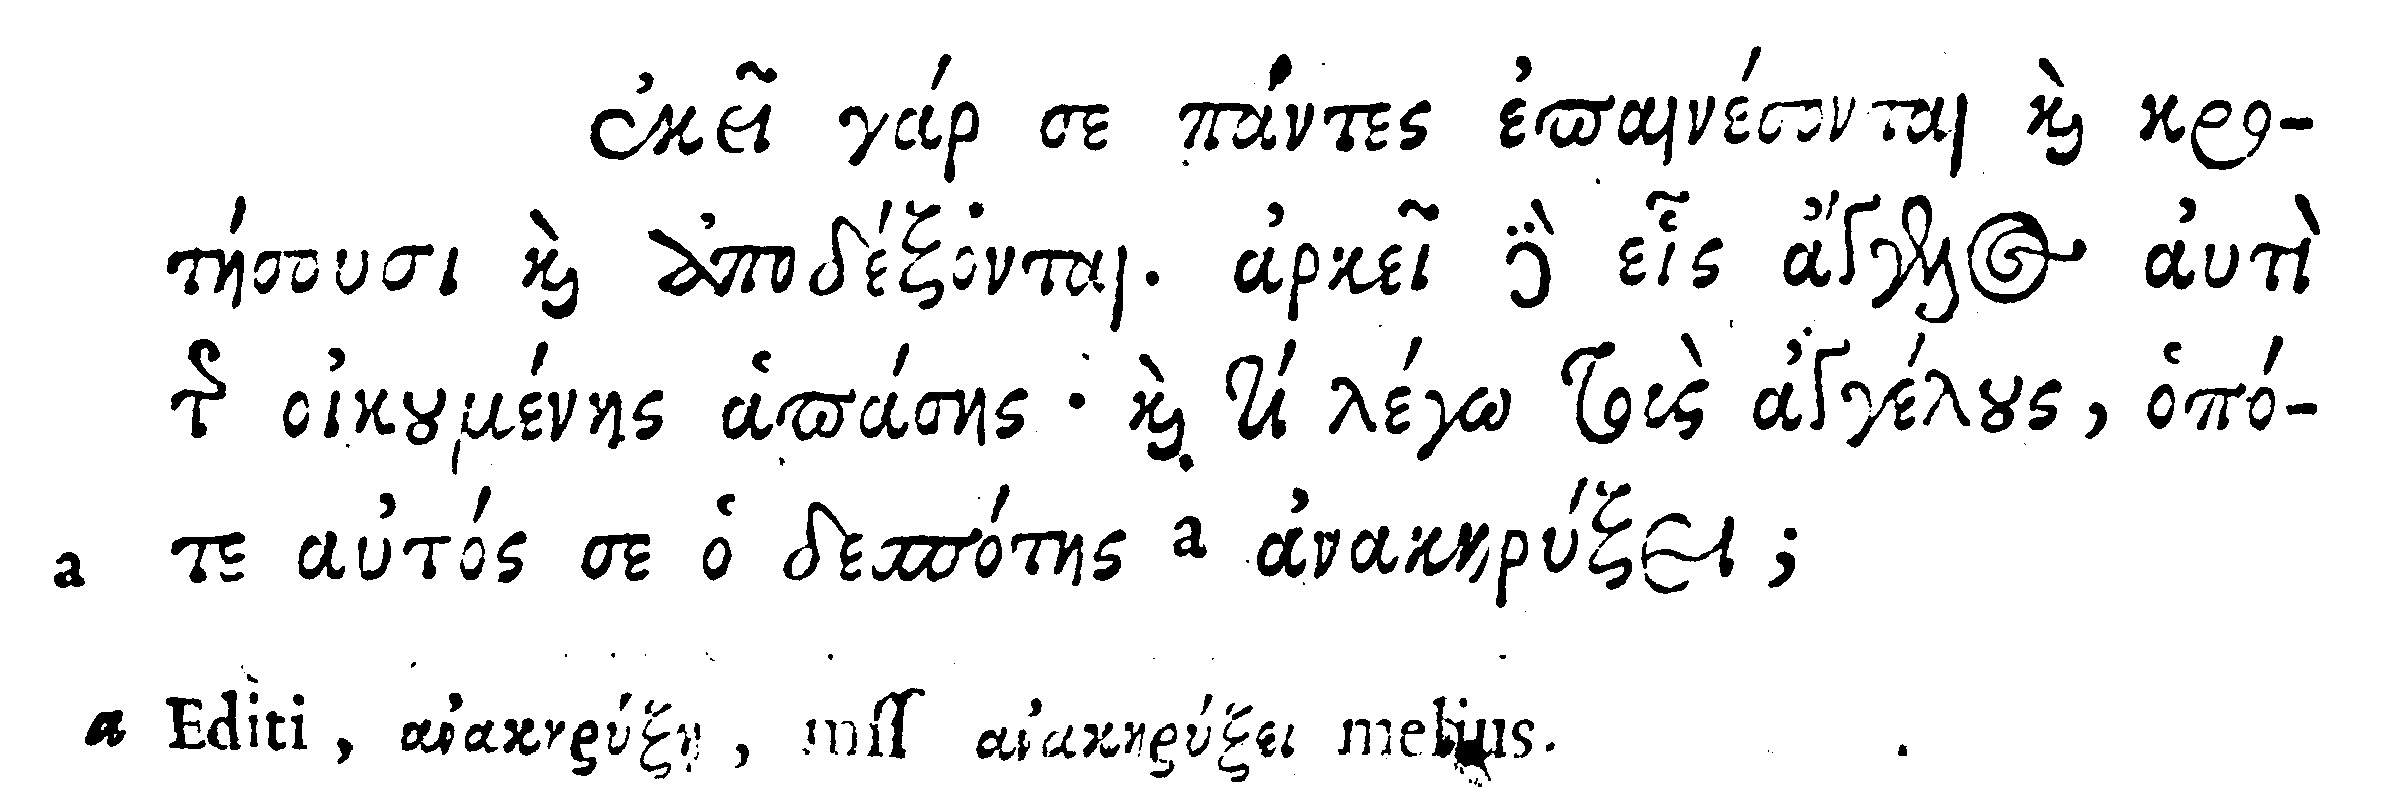 ἐκεῖ γάρ σε πάντες ἐπαινέσονται καὶ κρο-
τήσουσι καὶ ἀποδέξονται. ἀρκεῖ γὰρ εἷς ἄγγελος ἀντὶ
τῆς οἰκουμένης ἁπάσης· καὶ τί λέγω τοὺς ἀγγέλους, ὁπό-
a τε αὐτός σε ὁ δεσπότης a ἀνακηρύξει;
a Editi, ἀνακηρύξῃ, mſſ ἀνακηρύξει melius.